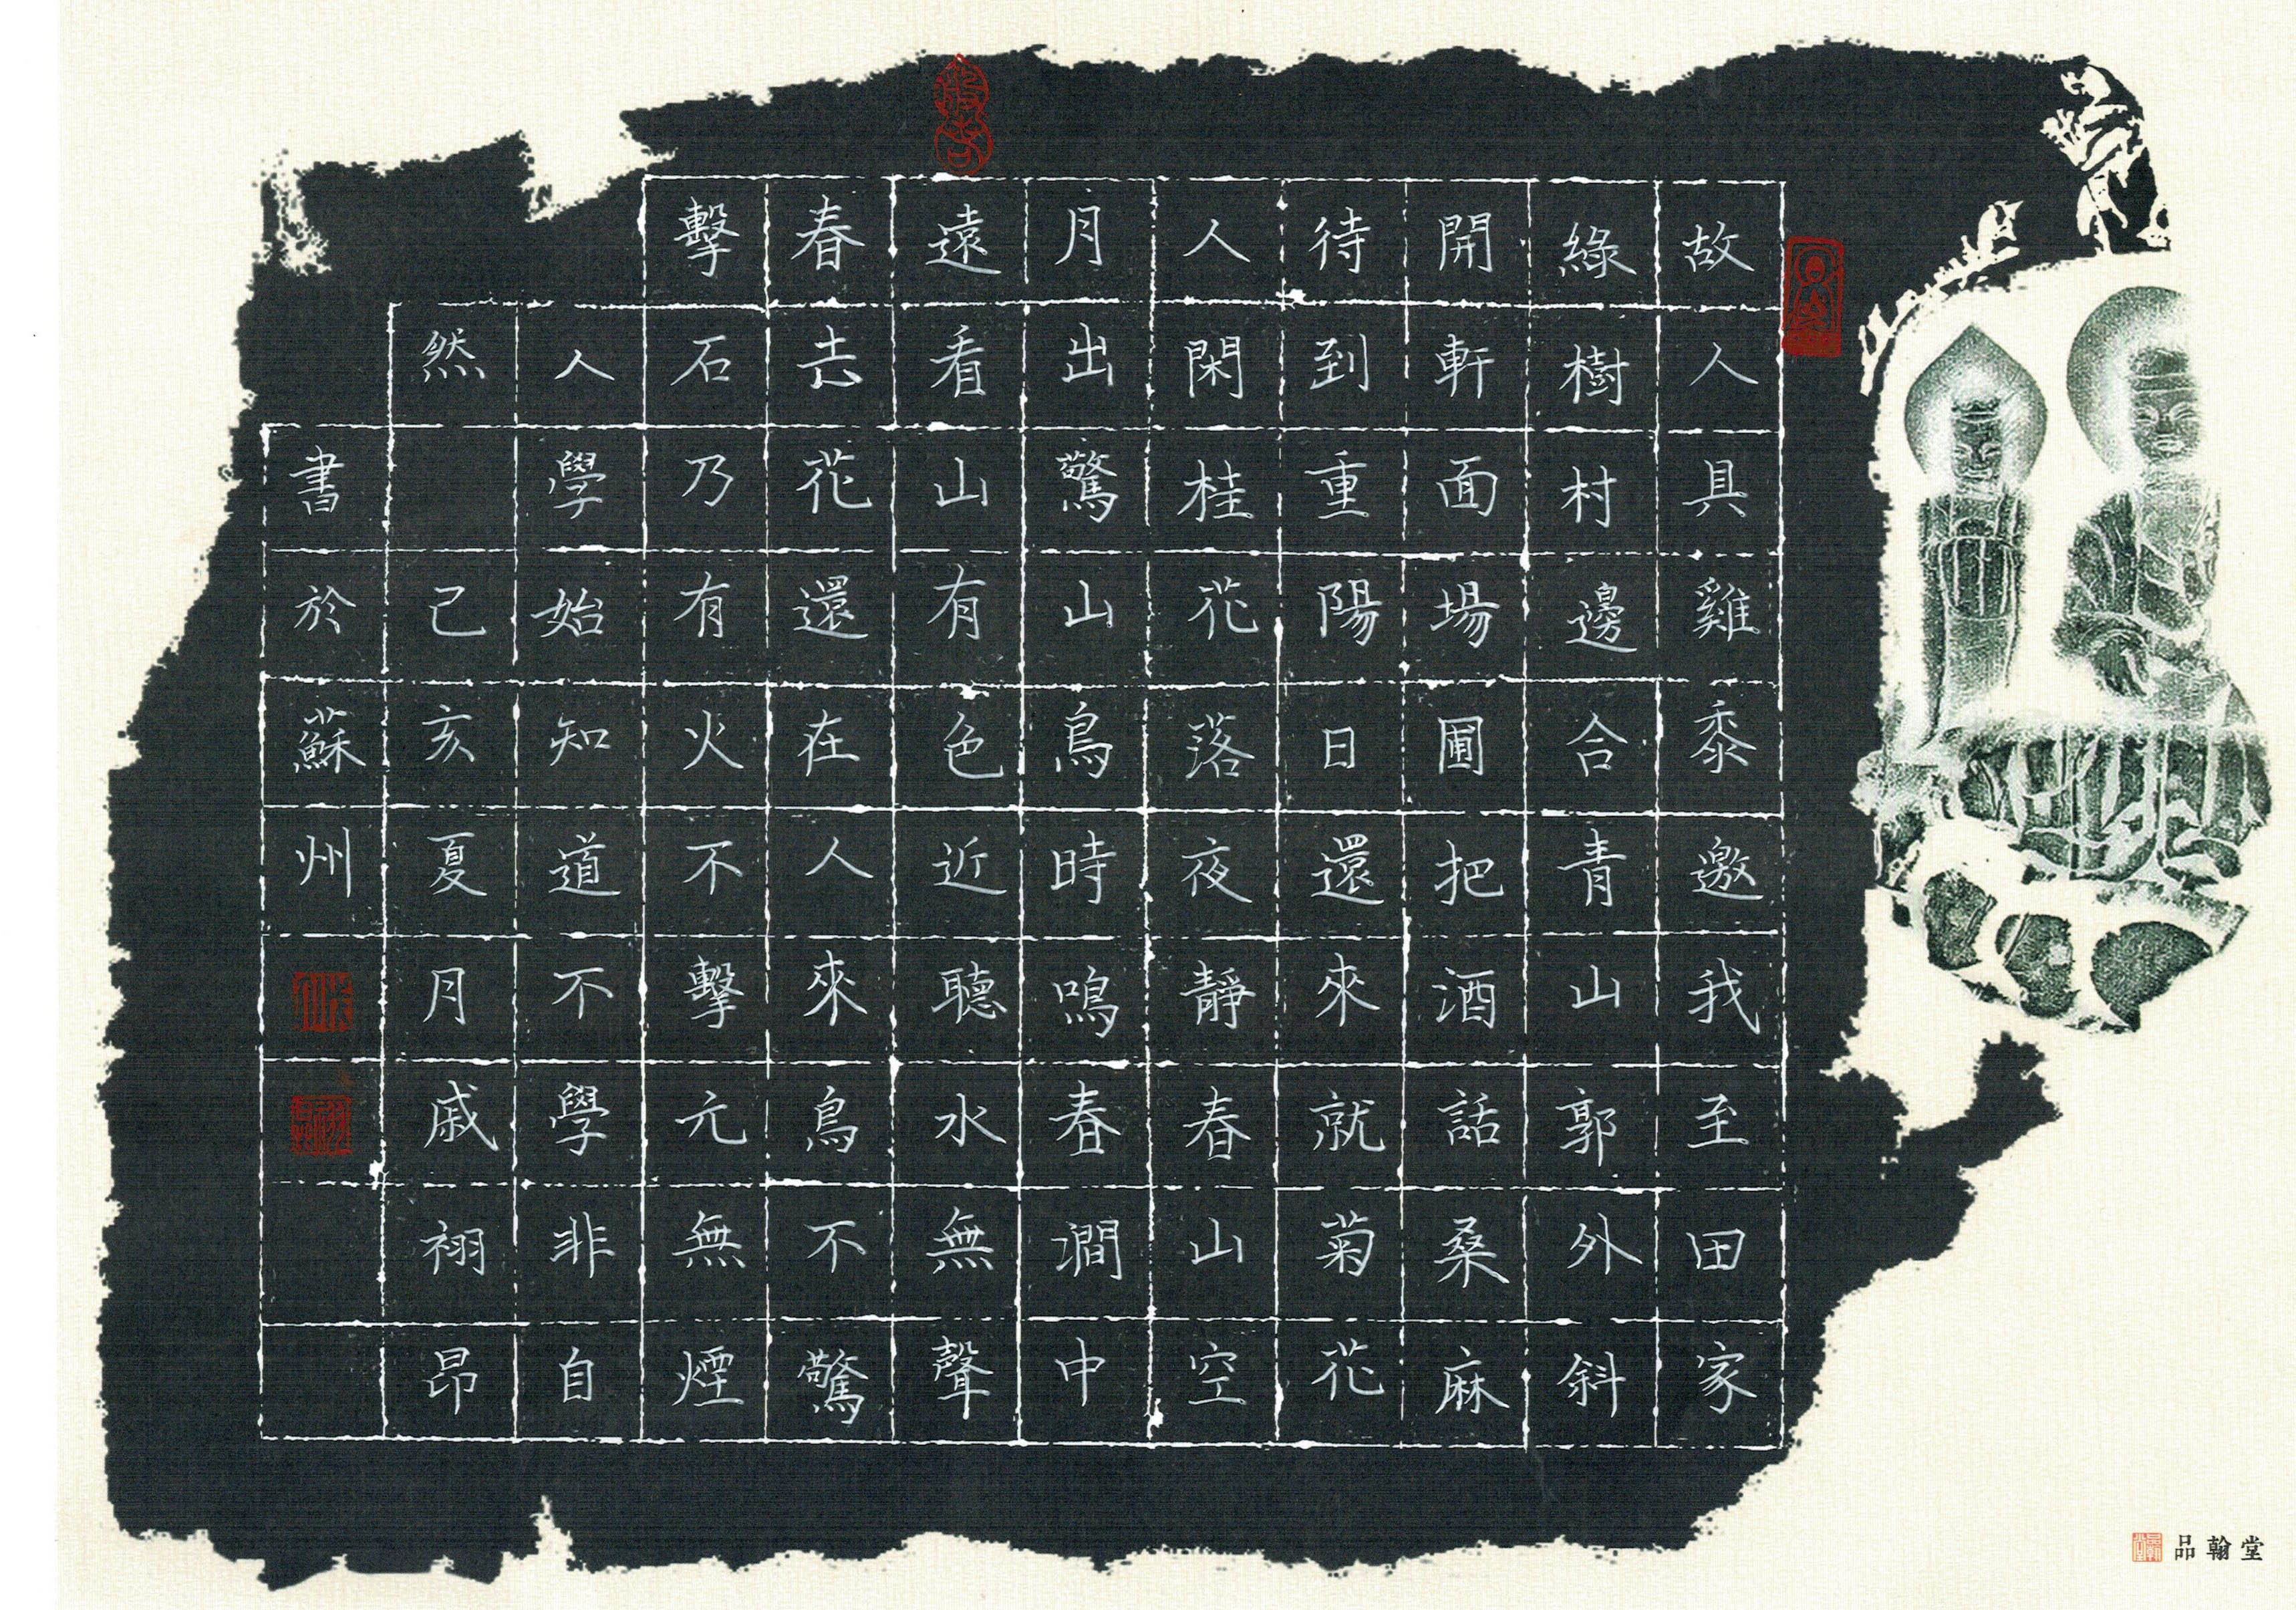 故人具雞黍邀我至田家
綠樹村邊合青山郭外斜
開軒面場圃把酒話桑麻
待到重陽日還來就菊花
人閑桂花落夜靜春山空
月出驚山鳥時鳴春澗中
遠看山有色近聽水無聲
春去花還在人來鳥不驚
擊石乃有火不擊元無煙
人學始知道不學非自
然 己亥夏月戚祤昂
書於蘇州
品翰堂